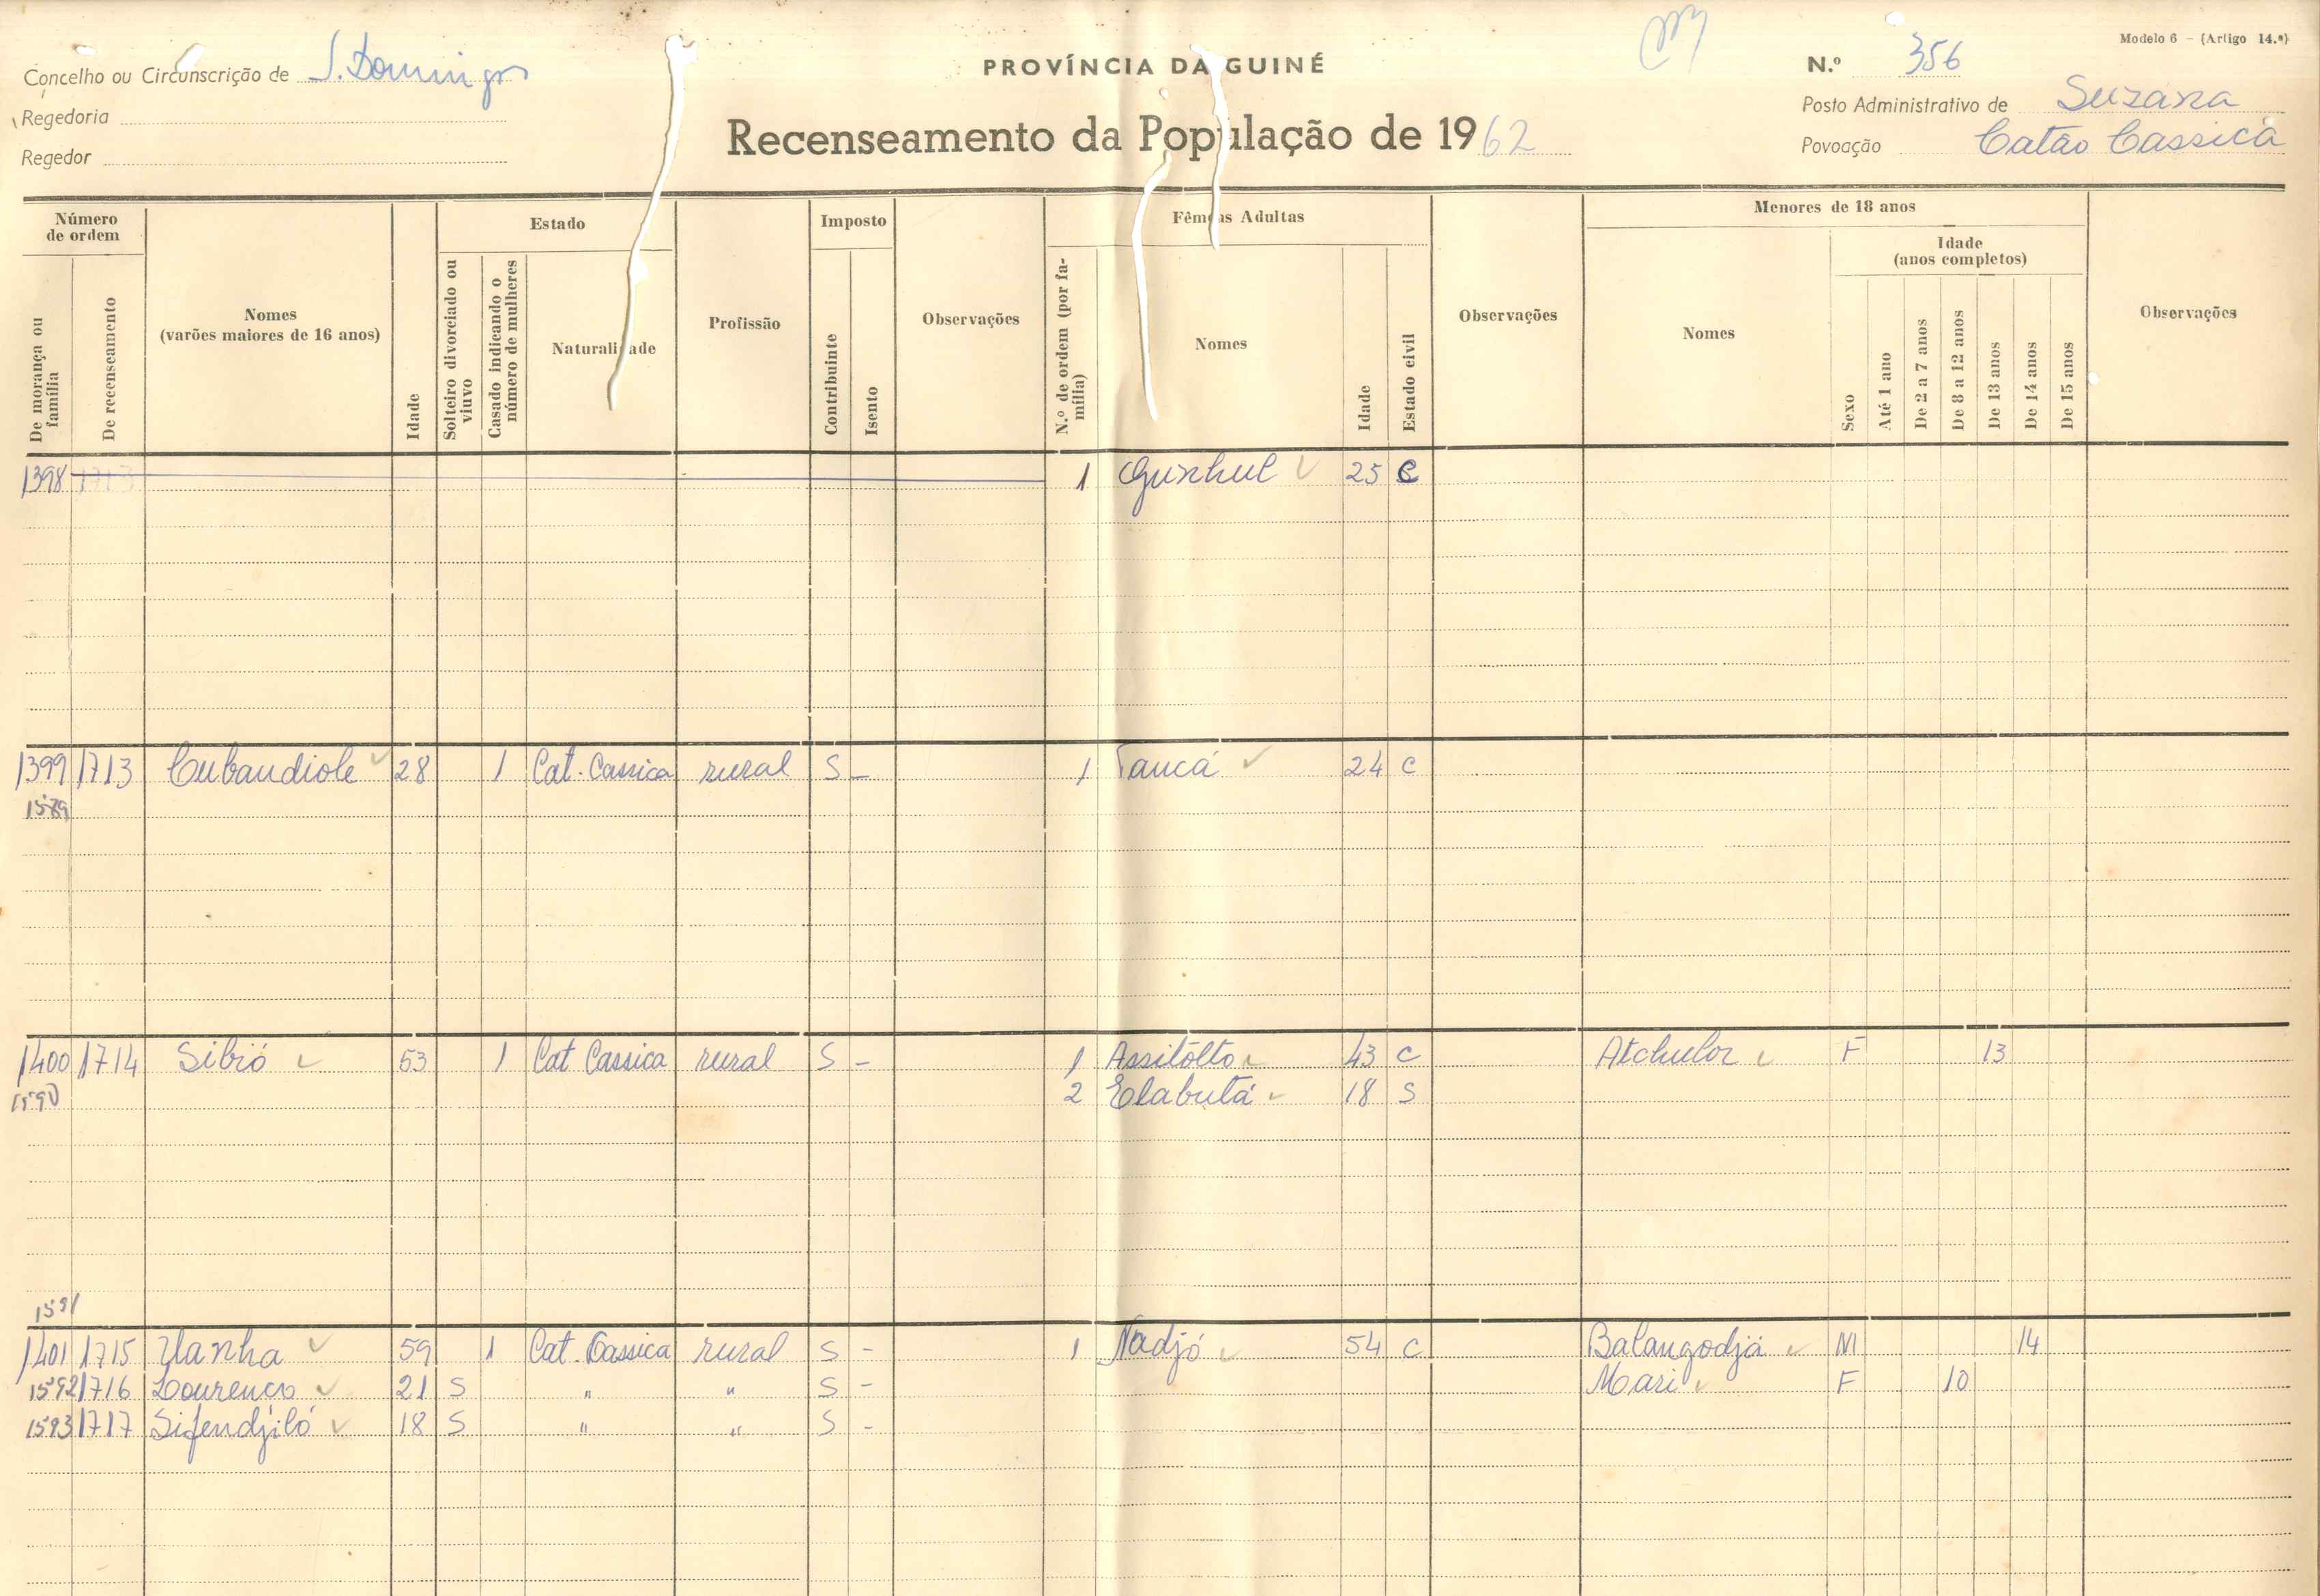 Modelo 6 – (Artigo 14.º)
Concelho ou Circunscrição de S. Domingos
PROVÍNCIA DA GUINÉ
N.º 356
Regedoria
Recenseamento da População de 1962
Posto Administrativo de Suzana
Regedor
Povoação Catão Cassica
Número de ordem
De morança ou família
De recenseamento
Nomes
(varões maiores de 16 anos)
Idade
Estado
Solteiro divorciado ou viuvo
Casado indicando o número de mulheres
Naturalidade
Profissão
Imposto
Contribuinte
Isento
Observações
Fêmeas Adultas
N.º de ordem (por família)
Nomes
Idade
Estado civil
Observações
Menores de 18 anos
Nomes
Sexo
Idade
(anos completos)
Até 1 ano
De 2 a 7 anos
De 8 a 12 anos
De 13 anos
De 14 anos
De 15 anos
Observações
1398 1713 1 Gunhul 25 C
1399 1713 Cubandiole 28 1 Cat. Cassica rural S - 1 Taucá 24 C
1589
1400 1714 Sibió 53 1 Cat Cassica rural S - 1 Assitôlto 43 C Atchulor F 13
1590 2 Elabutá 18 S
1591
1401 1715 Ylanha 59 1 Cat. Cassica rural S - 1 Nadjó 54 C Balangodjá M 14
1592 1716 Lourenço 21 S " " S - Mari F 10
1593 1717 Sifendjiló 18 S " " S -